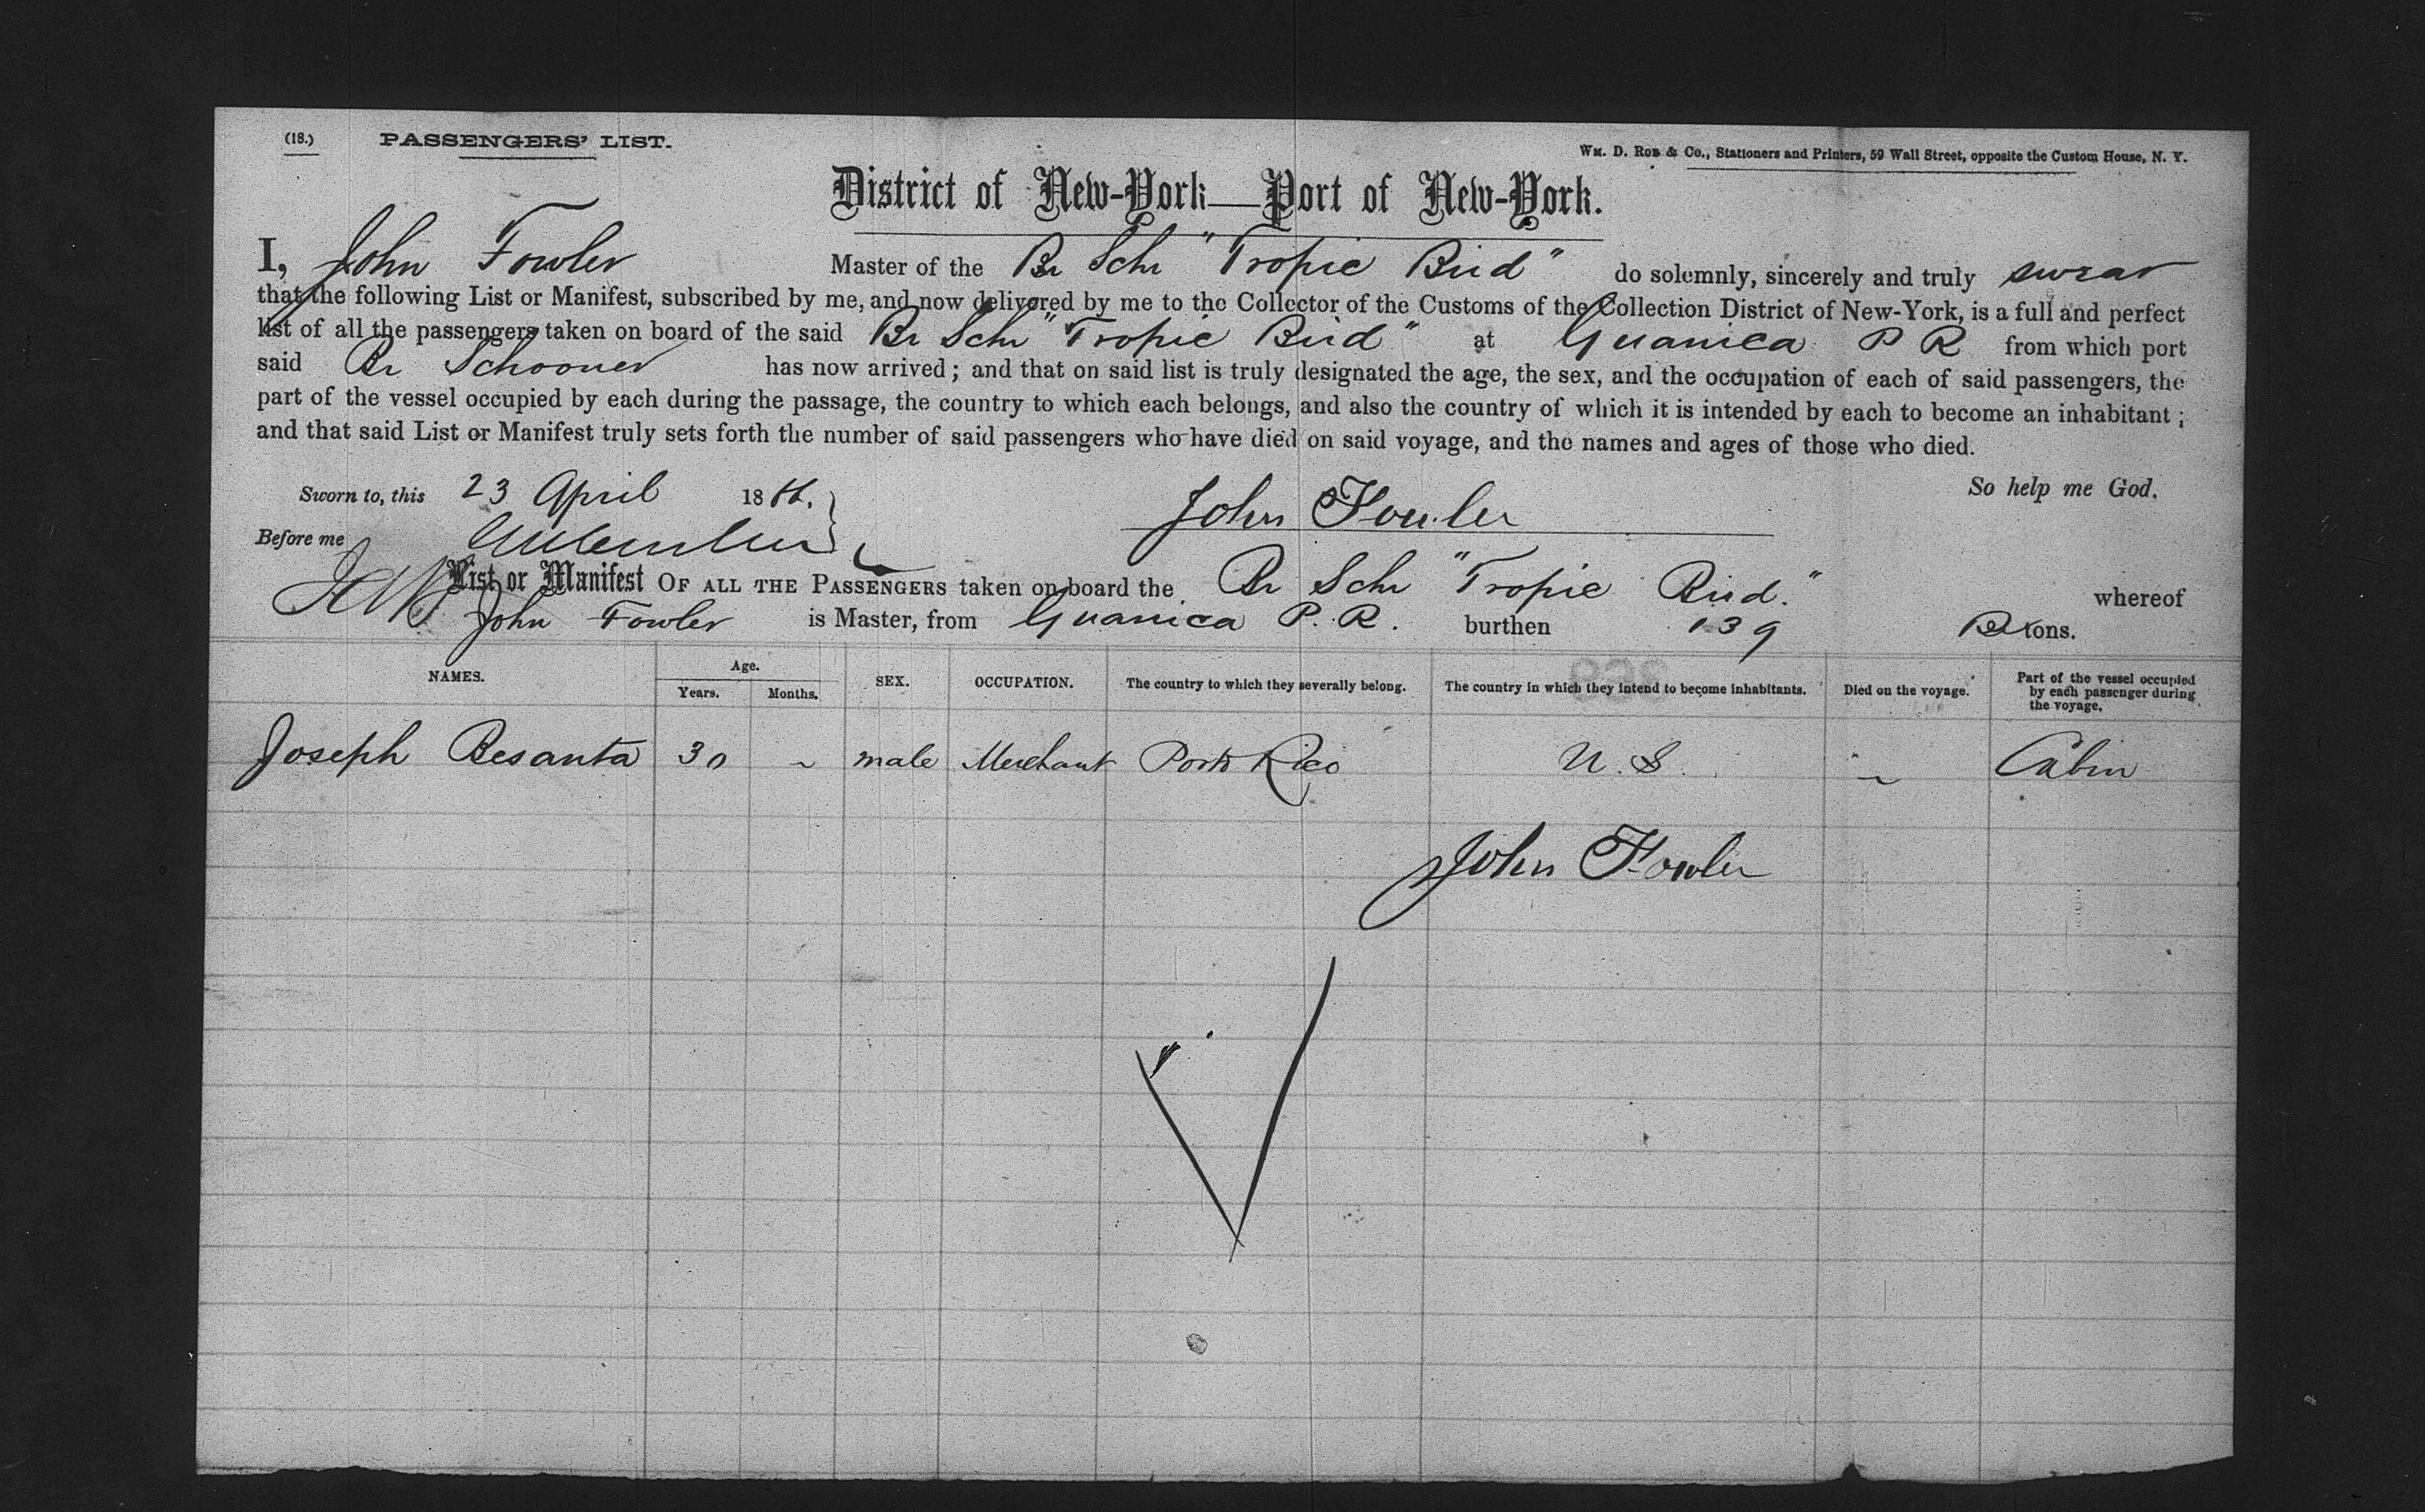 (18.) PASSENGERS' LIST.
Wm. D. Roe & Co., Stationers and Printers, 59 Wall Street, opposite the Custom House, N. Y.
District of New-York—Port of New-York.
I, John Fowler Master of the Br Schr "Tropic Bird" do solemnly, sincerely and truly swear
that the following List or Manifest, subscribed by me, and now delivered by me to the Collector of the Customs of the Collection District of New-York, is a full and perfect
list of all the passengers taken on board of the said Br Schr "Tropic Bird" at Guanica P R from which port
said Br Schooner has now arrived; and that on said list is truly designated the age, the sex, and the occupation of each of said passengers, the
part of the vessel occupied by each during the passage, the country to which each belongs, and also the country of which it is intended by each to become an inhabitant;
and that said List or Manifest truly sets forth the number of said passengers who have died on said voyage, and the names and ages of those who died.
Sworn to, this 23 April 18 So help me God.
John Fowler
Before me
List or Manifest OF ALL THE PASSENGERS taken on board the Br Schr "Tropic Bird." whereof
John Fowler is Master, from Guanica P. R. burthen 139 tons.
NAMES. Age. Years. Months. SEX. OCCUPATION. The country to which they severally belong. The country in which they intend to become inhabitants. Died on the voyage. Part of the vessel occupied by each passenger during the voyage.
Joseph Besanta 30 ~ male Merchant Porto Rico U. S. ~ Cabin
John Fowler